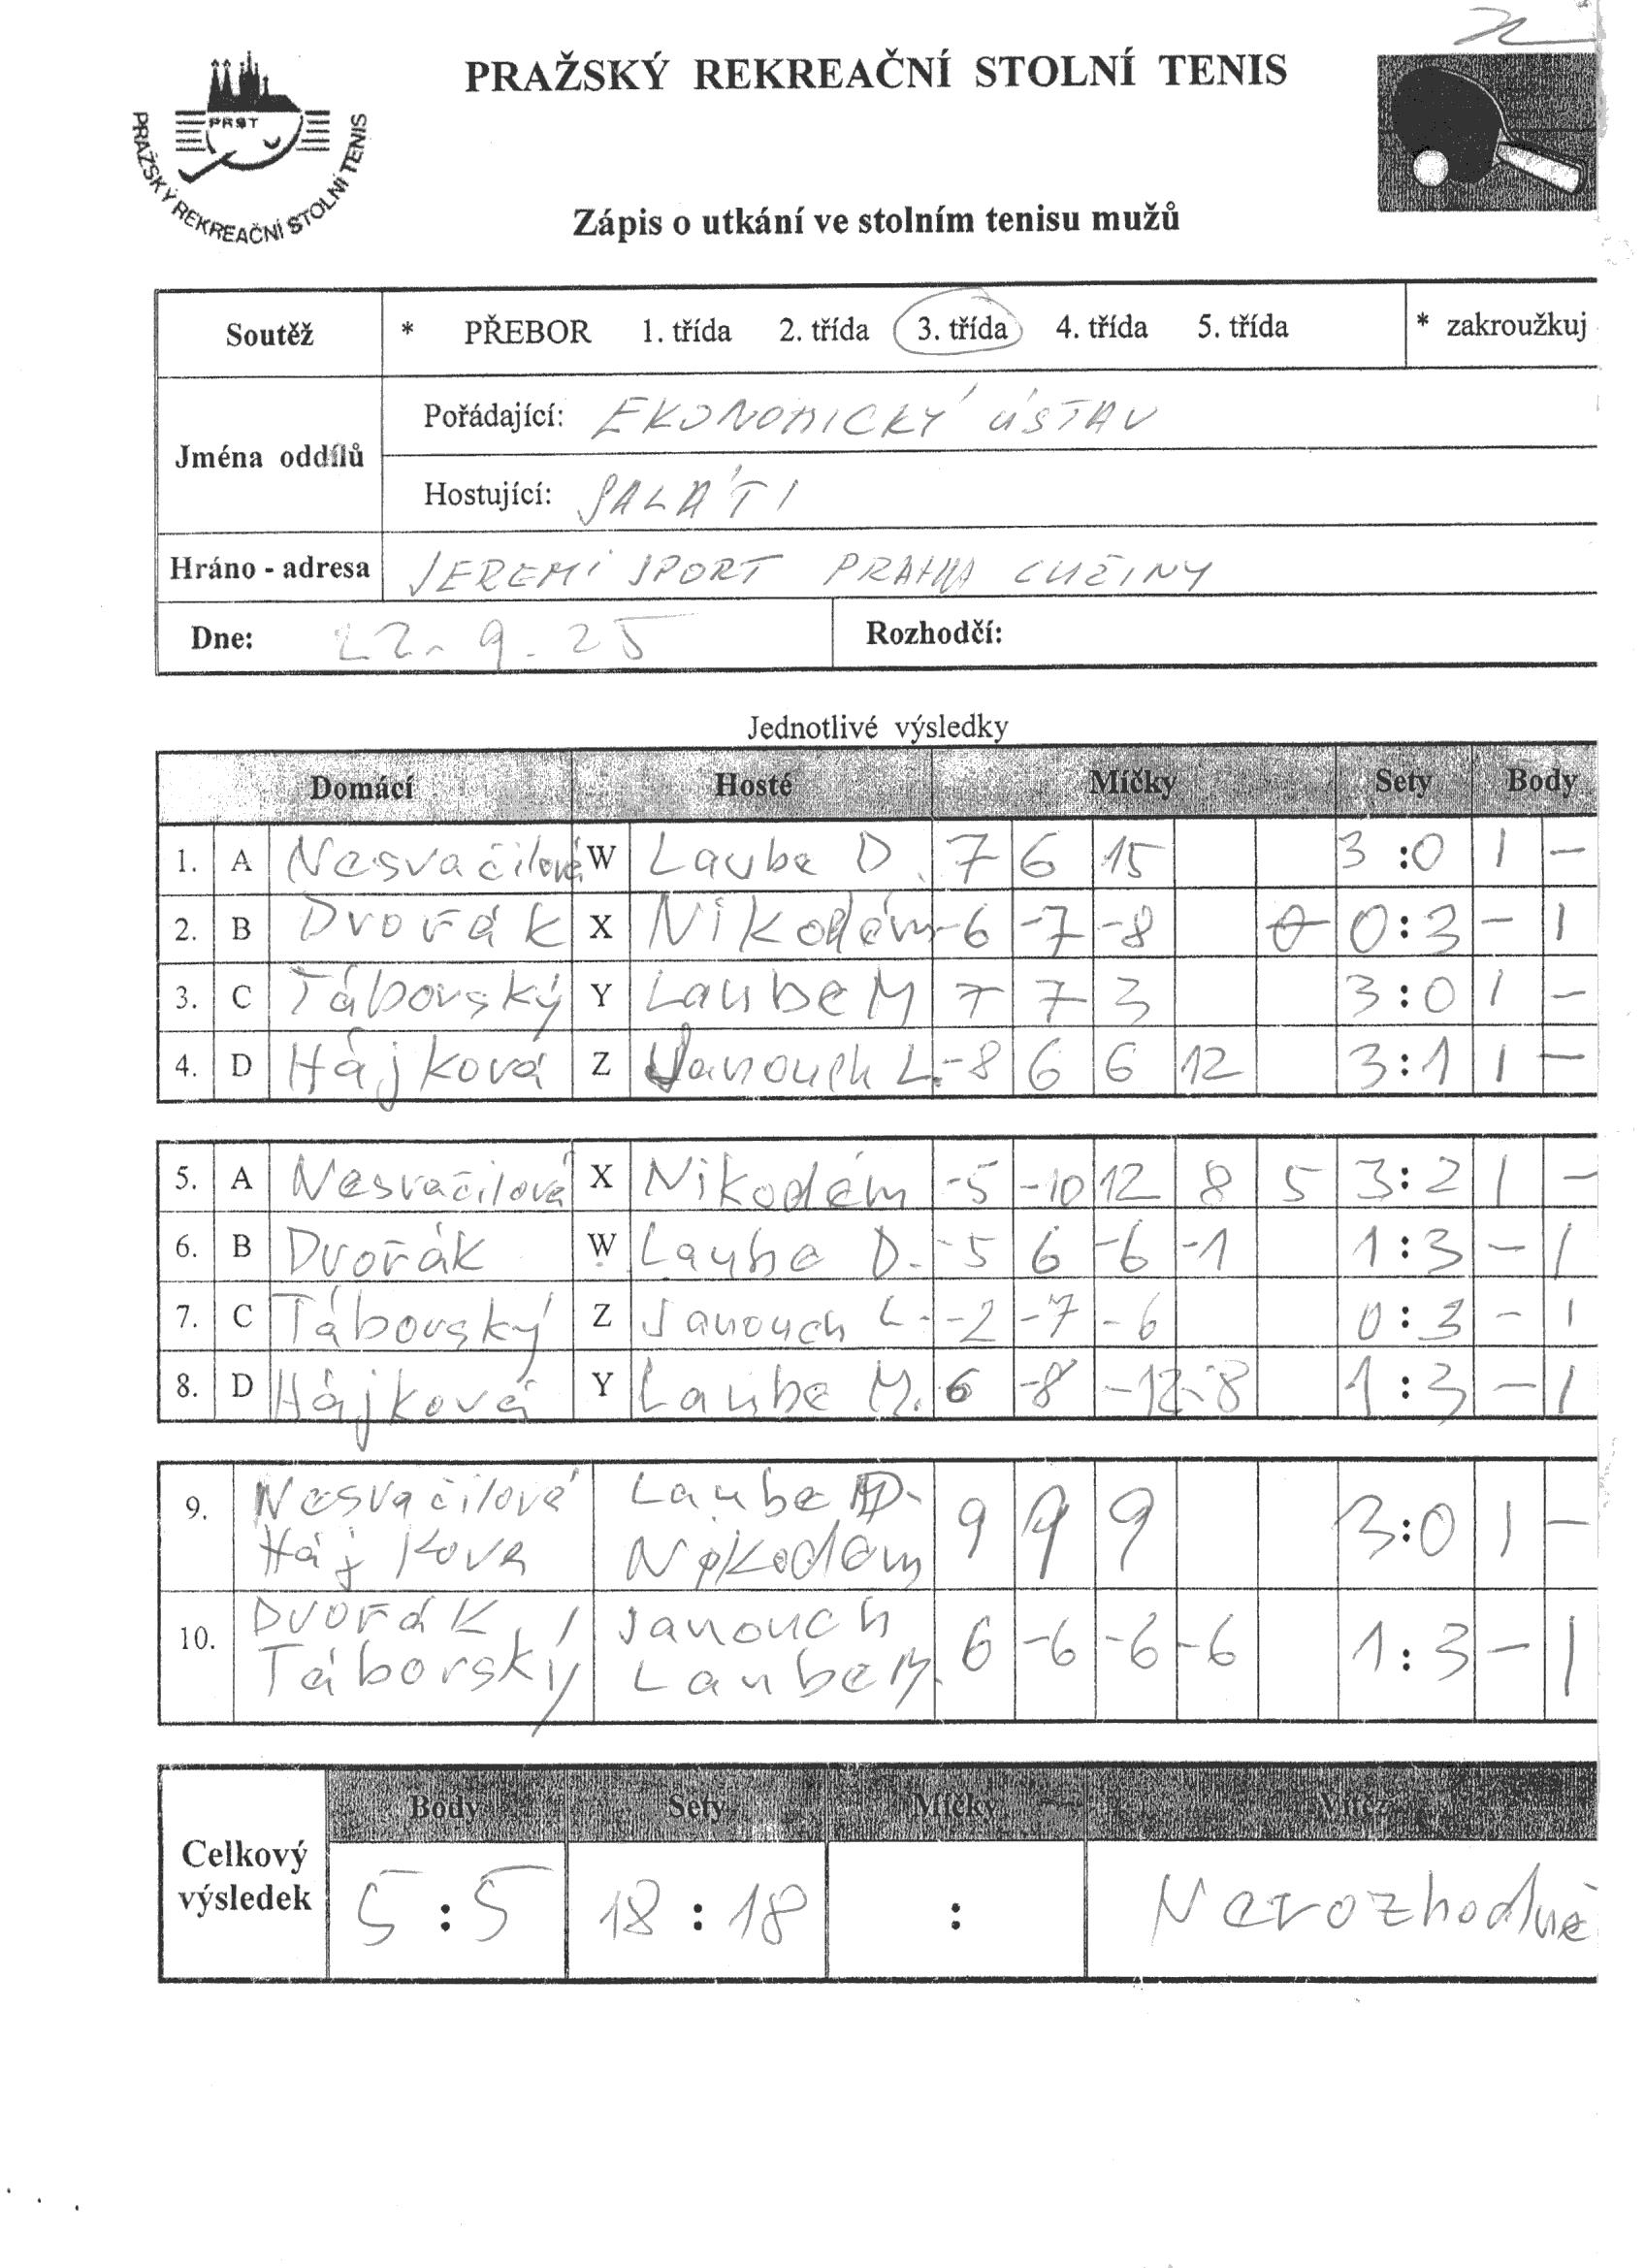 PRAŽSKÝ REKREAČNÍ STOLNÍ TENIS
PRST
PRAŽSKÝ REKREAČNÍ STOLNÍ TENIS
Zápis o utkání ve stolním tenisu mužů
Soutěž * PŘEBOR 1. třída 2. třída 3. třída 4. třída 5. třída * zakroužkuj
Jména oddílů
Pořádající: EKONOMICKÝ ÚSTAV
Hostující: SALÁTI
Hráno - adresa JEREMI SPORT PRAHA LUŽINY
Dne: 22. 9. 25 Rozhodčí:
Jednotlivé výsledky
Domácí Hosté Míčky Sety Body
1. A Nesvačilová W Laube D. 7 6 15 3:0 1 -
2. B Dvořák X Nikodém -6 -7 -8 0:3 - 1
3. C Táborský Y Laube M 7 7 3 3:0 1 -
4. D Hájková Z Janouch L. -8 6 6 12 3:1 1 -
5. A Nesvačilová X Nikodém -5 -10 12 8 5 3:2 1 -
6. B Dvořák W Laube D. -5 6 -6 -1 1:3 - 1
7. C Táborský Z Janouch L. -2 -7 -6 0:3 - 1
8. D Hájková Y Laube M. 6 -8 -12 -8 1:3 - 1
9. Nesvačilová Laube D. 9 9 9 3:0 1 -
Hájkova Nikodém
10. Dvořák / Janouch 6 -6 -6 -6 1:3 - 1
Táborský Laube M.
Body Sety Míčky Vítěz
Celkový výsledek 5:5 18:18 : Nerozhodně